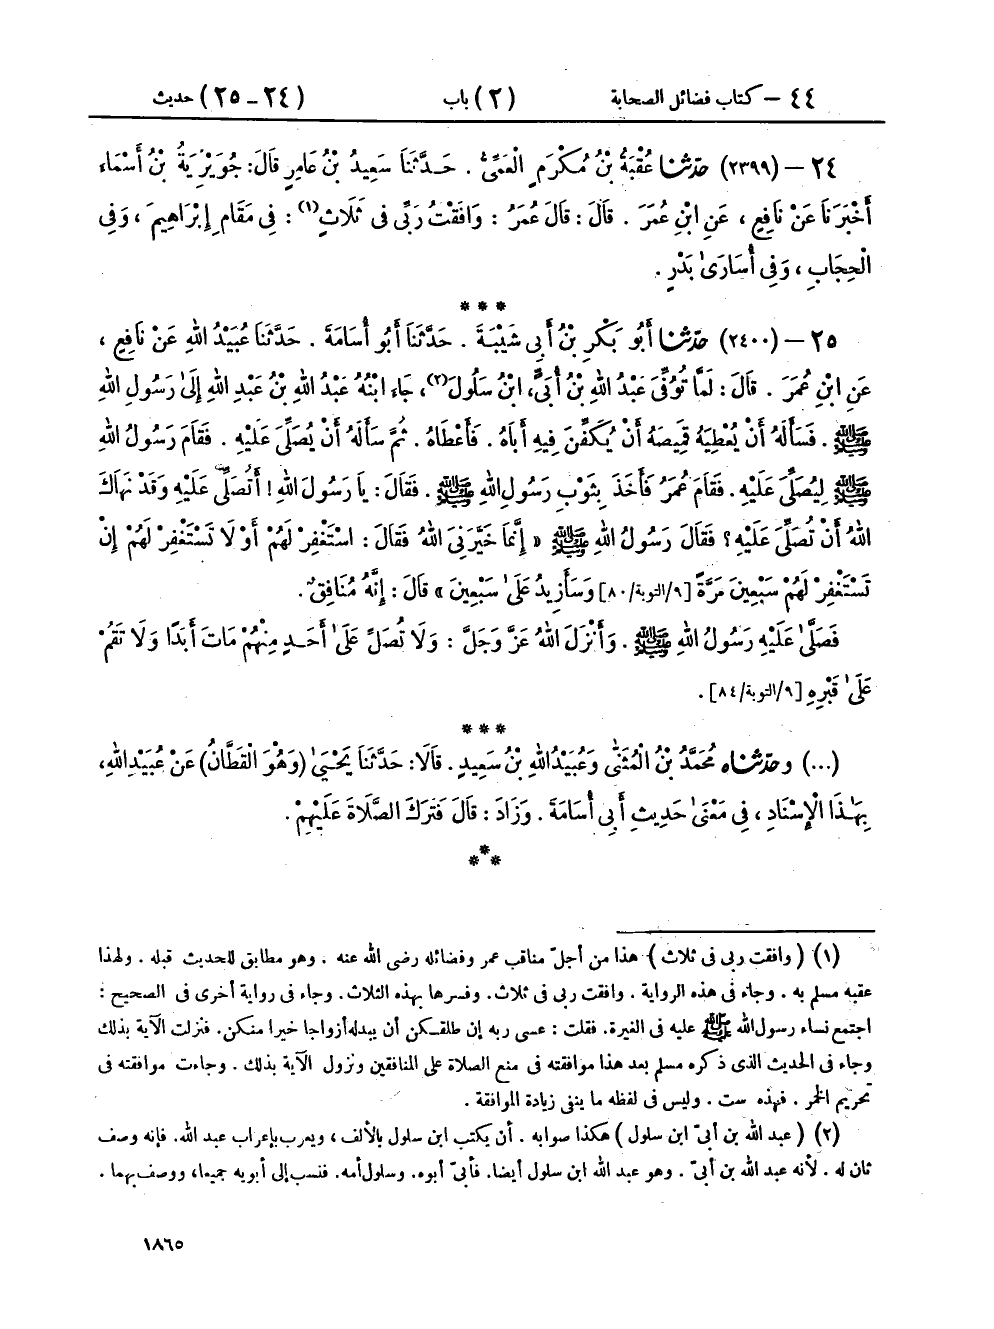 ٤٤ — كتاب فضائل الصحابة (٢) باب (٢٤ - ٢٥) حديث
٢٤ — (٢٣٩٩) حدّثنا عُقْبَةُ بْنُ مُكْرَمٍ الْعَمِّىُّ . حَدَّثَنَا سَعِيدُ بْنُ عَامِرٍ قَالَ: جُوَيْرِيَةُ بْنُ أَسْمَاء
أَخْبَرَنَا عَنْ نَافِعٍ ، عَنِ ابْنِ عُمَرَ . قَالَ : قَالَ عُمَرُ : وَافَقْتُ رَبِّى فِى ثَلَاثٍ(١) : فِى مَقَامِ إِبْرَاهِيمَ ، وَفِى
الْحِجَابِ ، وَفِى أُسَارَىٰ بَدْرٍ .
***
٢٥ — (٢٤٠٠) حدّثنا أَبُو بَكْرِ بْنُ أَبِى شَيْبَةَ . حَدَّثَنَا أَبُو أُسَامَةَ . حَدَّثَنَا عُبَيْدُ اللهِ عَنْ نَافِعٍ ،
عَنِ ابْنِ عُمَرَ . قَالَ : لَمَّا تُوُفِّىَ عَبْدُ اللهِ بْنُ أُبَىٍّ، ابْنُ سَلُولَ(٢)، جَاءَ ابْنُهُ عَبْدُ اللهِ بْنُ عَبْدِ اللهِ إِلَىٰ رَسُولِ اللهِ
ﷺ . فَسَأَلَهُ أَنْ يُعْطِيَهُ قَمِيصَهُ أَنْ يُكَفِّنَ فِيهِ أَبَاهُ . فَأَعْطَاهُ . ثُمَّ سَأَلَهُ أَنْ يُصَلِّىَ عَلَيْهِ . فَقَامَ رَسُولُ اللهِ
ﷺ لِيُصَلِّىَ عَلَيْهِ . فَقَامَ عُمَرُ فَأَخَذَ بِثَوْبِ رَسُولِ اللهِ ﷺ . فَقَالَ : يَا رَسُولَ اللهِ ! أَتُصَلِّى عَلَيْهِ وَقَدْ نَهَاكَ
اللهُ أَنْ تُصَلِّىَ عَلَيْهِ ؟ فَقَالَ رَسُولُ اللهِ ﷺ « إِنَّمَا خَيَّرَنِىَ اللهُ فَقَالَ : اسْتَغْفِرْ لَهُمْ أَوْ لَا تَسْتَغْفِرْ لَهُمْ إِنْ
تَسْتَغْفِرْ لَهُمْ سَبْعِينَ مَرَّةً [٩/التوبة/٨٠] وَسَأَزِيدُ عَلَىٰ سَبْعِينَ » قَالَ : إِنَّهُ مُنَافِقٌ .
فَصَلَّىٰ عَلَيْهِ رَسُولُ اللهِ ﷺ . وَأَنْزَلَ اللهُ عَزَّ وَجَلَّ : وَلَا تُصَلِّ عَلَىٰ أَحَدٍ مِنْهُمْ مَاتَ أَبَدًا وَلَا تَقُمْ
عَلَىٰ قَبْرِهِ [٩/التوبة/٨٤] .
***
(...) وحدّثناه مُحَمَّدُ بْنُ الْمُثَنَّىٰ وَعُبَيْدُ اللهِ بْنُ سَعِيدٍ . قَالَا : حَدَّثَنَا يَحْيَىٰ (وَهُوَ الْقَطَّانُ) عَنْ عُبَيْدِ اللهِ،
بِهَـٰذَا الْإِسْنَادِ ، فِى مَعْنَىٰ حَدِيثِ أَبِى أُسَامَةَ . وَزَادَ : قَالَ فَتَرَكَ الصَّلَاةَ عَلَيْهِمْ .
***
(١) ( وافقت ربى فى ثلاث ) هذا من أجلّ مناقب عمر وفضائله رضى الله عنه . وهو مطابق للحديث قبله . ولهذا
عقبه مسلم به . وجاء فى هذه الرواية . وافقت ربى فى ثلاث. وفسرها بهذه الثلاث. وجاء فى رواية أخرى فى الصحيح :
اجتمع نساء رسول الله ﷺ عليه فى الغيرة. فقلت : عسى ربه إن طلقكن أن يبدله أزواجا خيرا منكن. فنزلت الآية بذلك
وجاء فى الحديث الذى ذكره مسلم بعد هذا موافقته فى منع الصلاة على المنافقين ونزول الآية بذلك . وجاءت موافقته فى
تحريم الخمر . فهذه ست . وليس فى لفظه ما ينفى زيادة الموافقة .
(٢) ( عبد الله بن أبىّ ابن سلول ) هكذا صوابه . أن يكتب ابن سلول بالألف ، ويعرب بإعراب عبد الله. فإنه وصف
ثان له . لأنه عبد الله بن أبىّ . وهو عبد الله ابن سلول أيضا. فأبىّ أبوه. وسلول أمه. فنسب إلى أبويه جميعا، ووصف بهما .
١٨٦٥